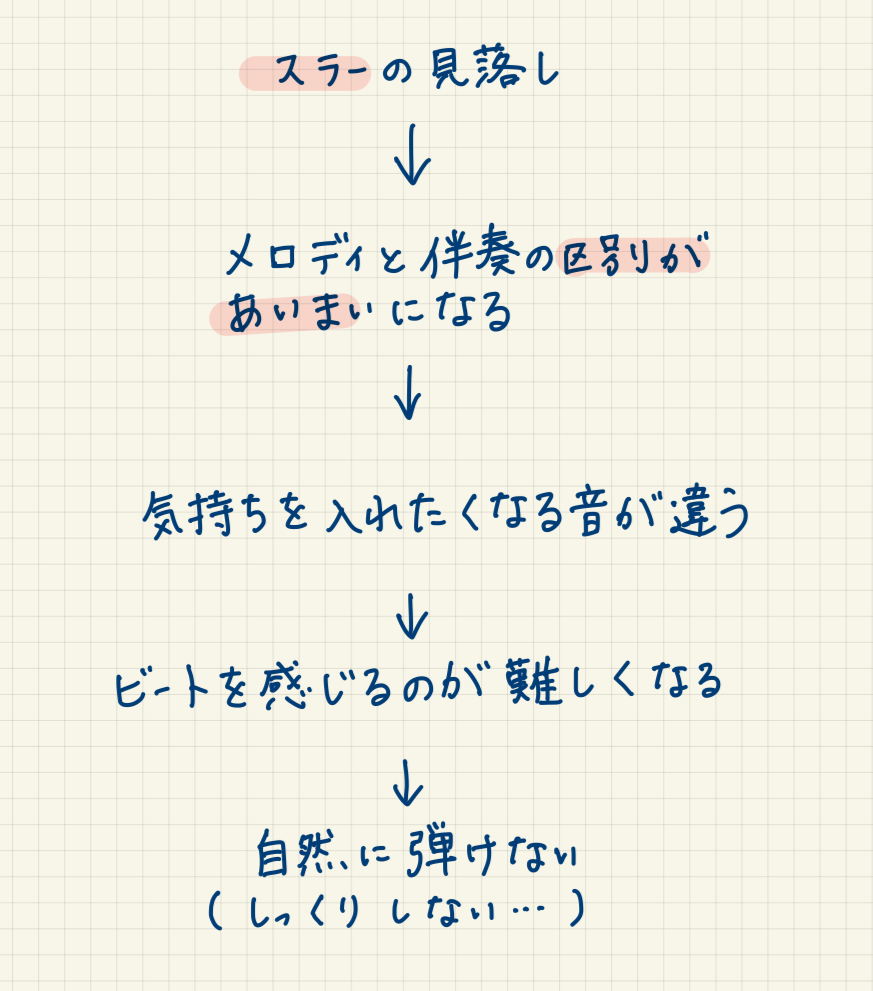 スラーの見落し
↓
メロディと伴奏の区別が
あいまいになる
↓
気持ちを入れたくなる音が違う
↓
ビートを感じるのが難しくなる
↓
自然に弾けない
(しっくりしない…)